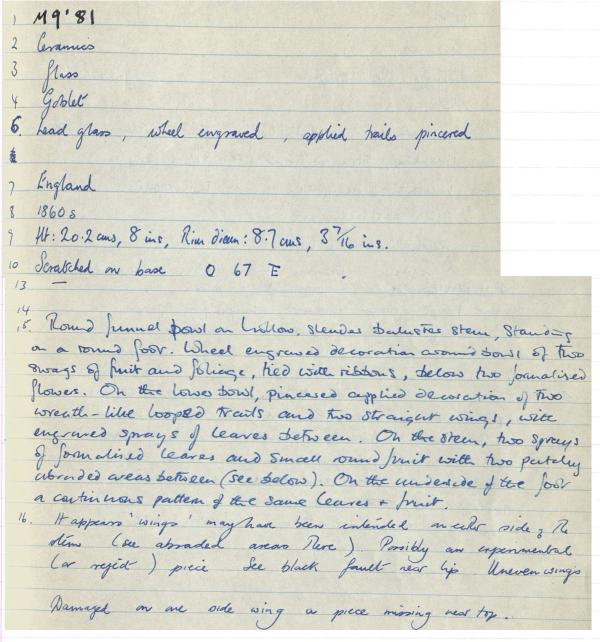 1 M9'81
2 Ceramics
3 Glass
4 Goblet
6 Lead glass, wheel engraved, applied trails pincered
7 England
8 1860s
9 Ht: 20.2 cms, 8 ins, Rim diam: 8.7 cms, 3 7/16 ins.
10 Scratched on base O 67 E
13 —
14
15. Round funnel bowl on hollow, slender baluster stem, standing
on a round foot. Wheel engraved decoration around bowl of two
swags of fruit and foliage, tied with ribbons, below two formalised
flowers. On the lower bowl, pincered applied decoration of two
wreath-like looped trails and two straight wings, with
engraved sprays of leaves between. On the stem, two sprays
of formalised leaves and small round fruit with two patchy
abraded areas between (see below). On the underside of the foot
a continuous pattern of the same leaves + fruit.
16. It appears 'wings' may have been intended on either side of the
stem (see abraded areas there). Possibly an experimental
(or reject) piece See black fault near lip Uneven wings
Damaged on one side wing a piece missing near top.